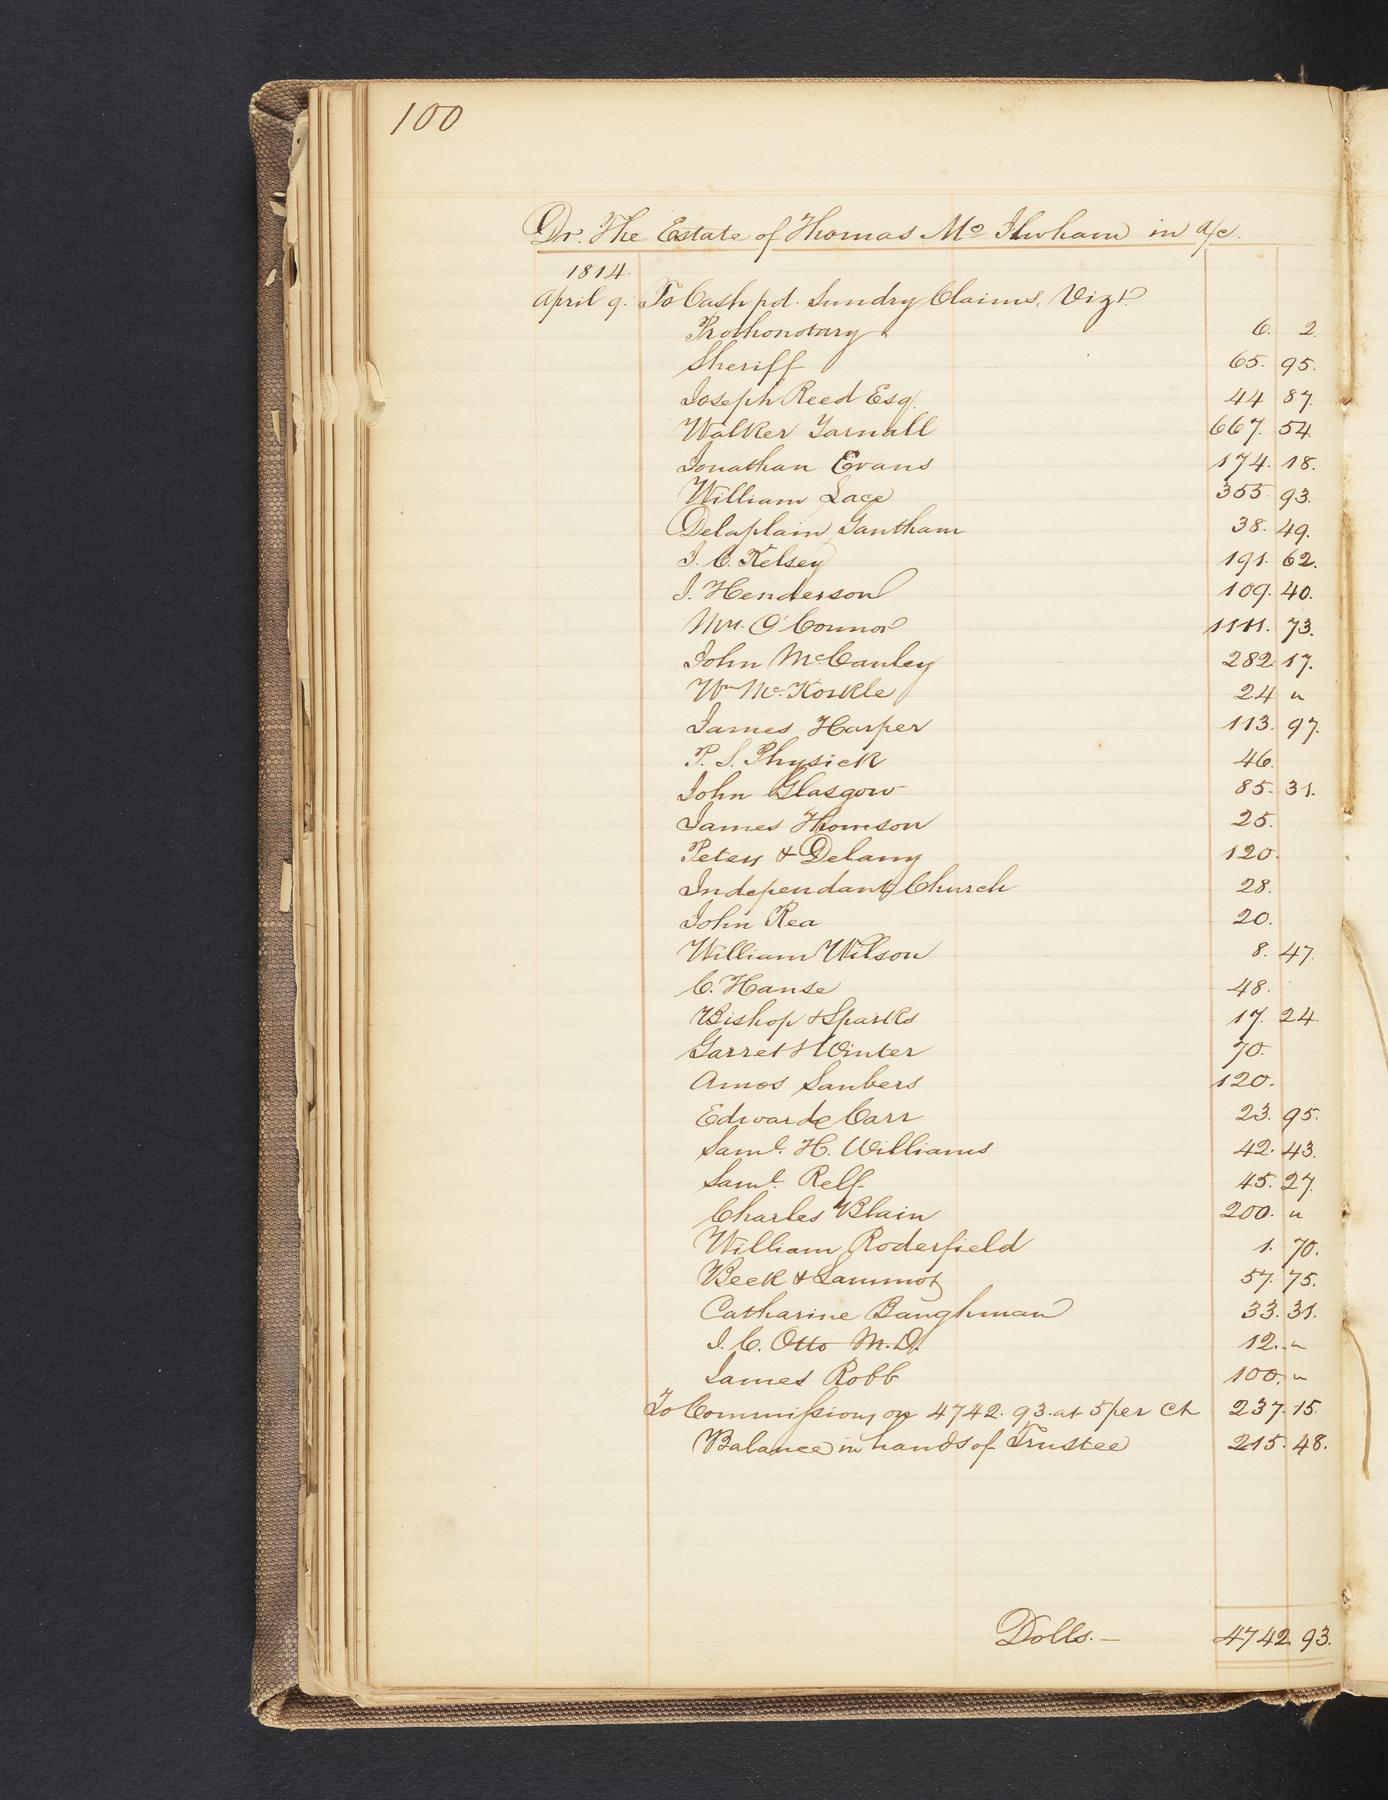 100
Dr. The Estate of Thomas Mc Ilwham in a/c.
1814.
April 9. To Cash pd. Sundry Claims, Vizt.
Prothonotary 6. 2.
Sheriff 65. 95.
Joseph Reed Esq. 44 87.
Walker Yarnall 667. 54
Jonathan Evans 174. 18.
William Lace 355 93.
Delaplain Gantham 38. 49.
I. C. Kelsey 191. 62.
I. Henderson 109. 40.
Mrs. O'Connor 1111. 73.
John McCauley 282 17.
Wm Mc. Korkle 24 "
James Harper 113. 97.
P. S. Physick 46.
John Glasgow 85. 31.
James Thomson 25.
Peters & Delany 120.
Independant Church 28.
John Rea 20.
William Wilson 8. 47.
C. Hanse 48.
Bishop & Sparks 17. 24.
Garret & Winter 70.
Amos Sanbers 120.
Edwarde Carr 23. 95.
Saml. H. Williams 42. 43.
Saml. Relf 45. 27.
Charles Blain 200. "
William Roderfield 1. 70.
Beck & Lammot 57. 75.
Catharine Baughman 33. 31.
I. C. Otto M. D. 12. "
James Robb 100. "
To Commission on 4742. 93. at 5 per Ct 237. 15.
Balance in hands of Trustee 215. 48.
Dolls. — 4742 93.